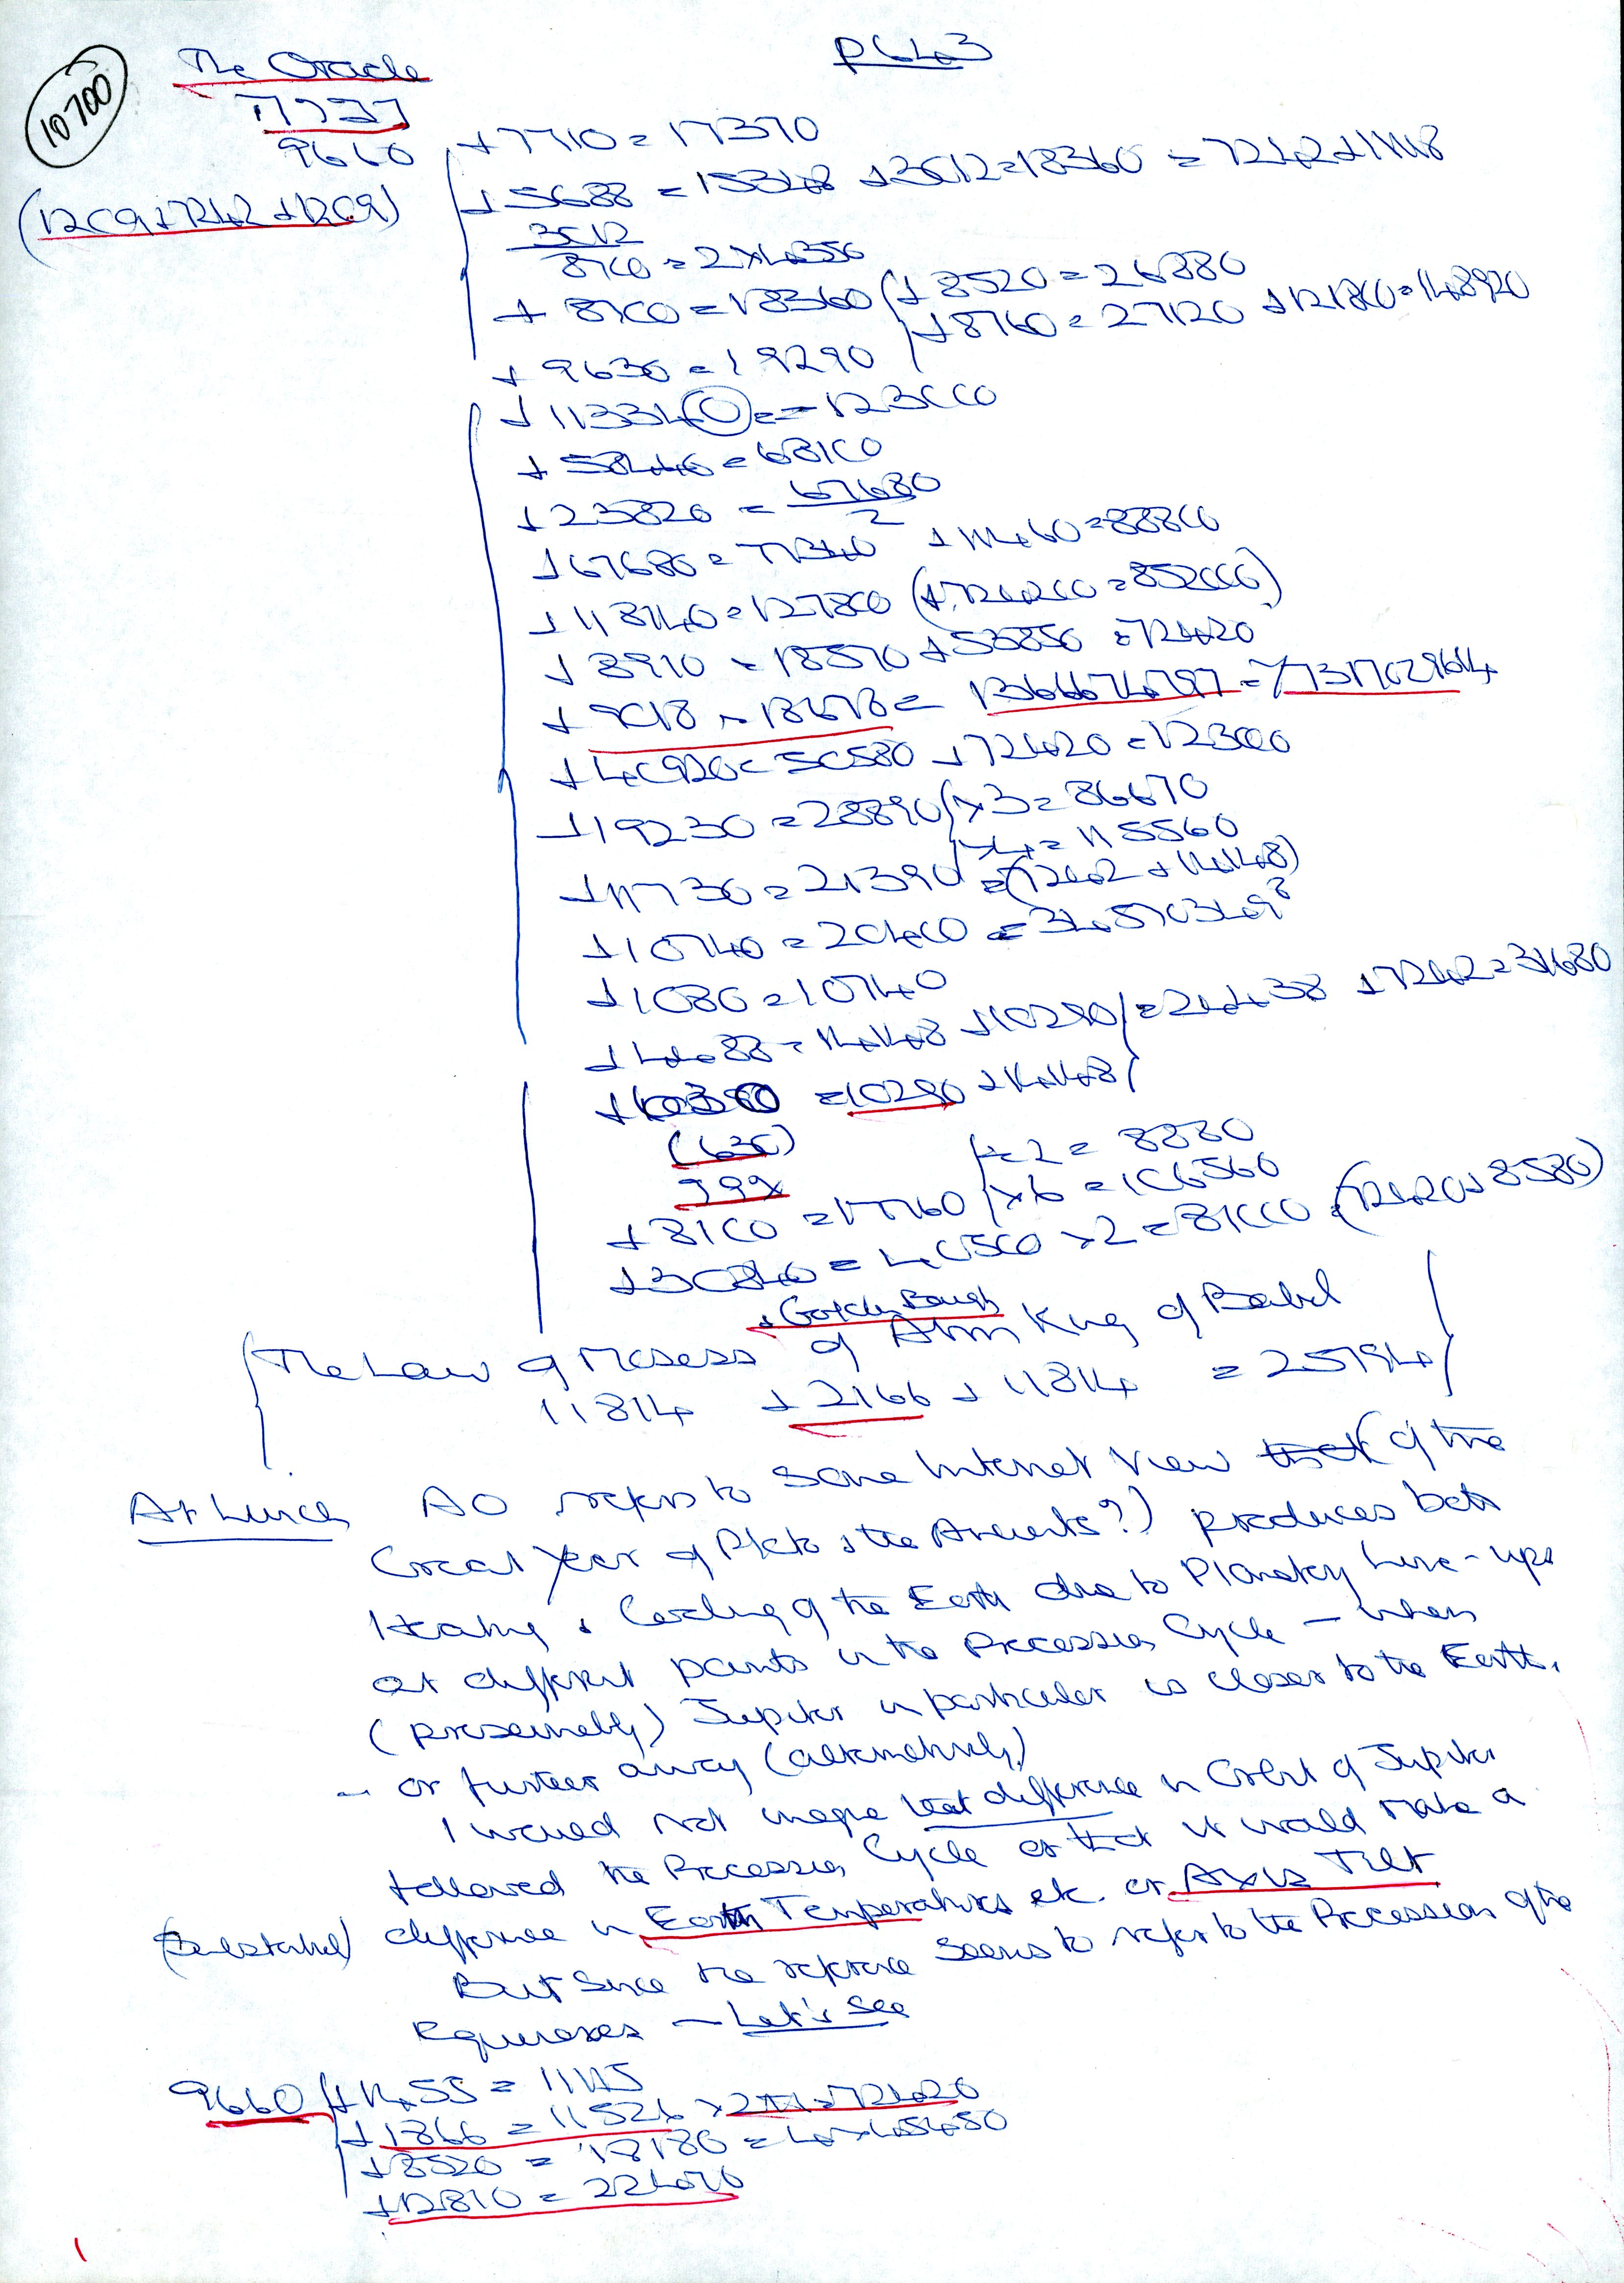 The Oracle
P643
10700
9660 + 7710 = 17370
(1209 + 7242 + 1209)
+ 5688 = 15348 + 3012 = 18360 = 7242 + 11118
3012
8700 = 2 x 4350
+ 8700 = 18360 + 8520 = 26880
+ 8760 = 27120 + 121800 = 148920
+ 9630 = 19290
+ 113340 = 123000
+ 58440 = 68100
+ 23820 = 67680
2
+ 67680 = 77340 + 11460 = 88800
+ 118140 = 127800 (+ 724200 = 852000)
+ 8910 = 18570 + 53850 = 72420
+ 9018 = 18678 =
+ 40920 = 50580 + 72420 = 123000
+ 19230 = 28890 x 3 = 86670
x 4 = 115560
+ 11730 = 21390 = (7242 + 14148)
+ 10740 = 20400
+ 1080 = 10740
+ 4488 = 14148 + 10290 = 24438 + 7242 = 31680
= 10290 + 14148
(630)
+ 8100 = 17760 ÷ 2 = 8880
x 6 = 106560
+ 30840 = 40500 x 2 = 81000
+ Golden Bough
The Law of Moses of King of Babel
11814 + 2166 + 11814 = 25794
At Lunch AO refers to some Internet View that (of the
Great Year of Plato & the Ancients?) produces both
Heating & Cooling of the Earth due to Planetary Line-ups
at different points in the Precession Cycle – when
(presumably) Jupiter in particular is closer to the Earth,
– or further away (alternatively)
I would not imagine that difference in Orbit of Jupiter
followed the Precession Cycle or that it would make a
(Substantial) difference in Earth Temperatures etc. or Axis Tilt
But since the reference seems to refer to the Precession of the
Equinoxes – Let's see
9660 + 1455 = 11115
+ 1866 = 11526 x 2π = 72420
+ 8520 = 18180 = 4 x
+ 12810 = 22470